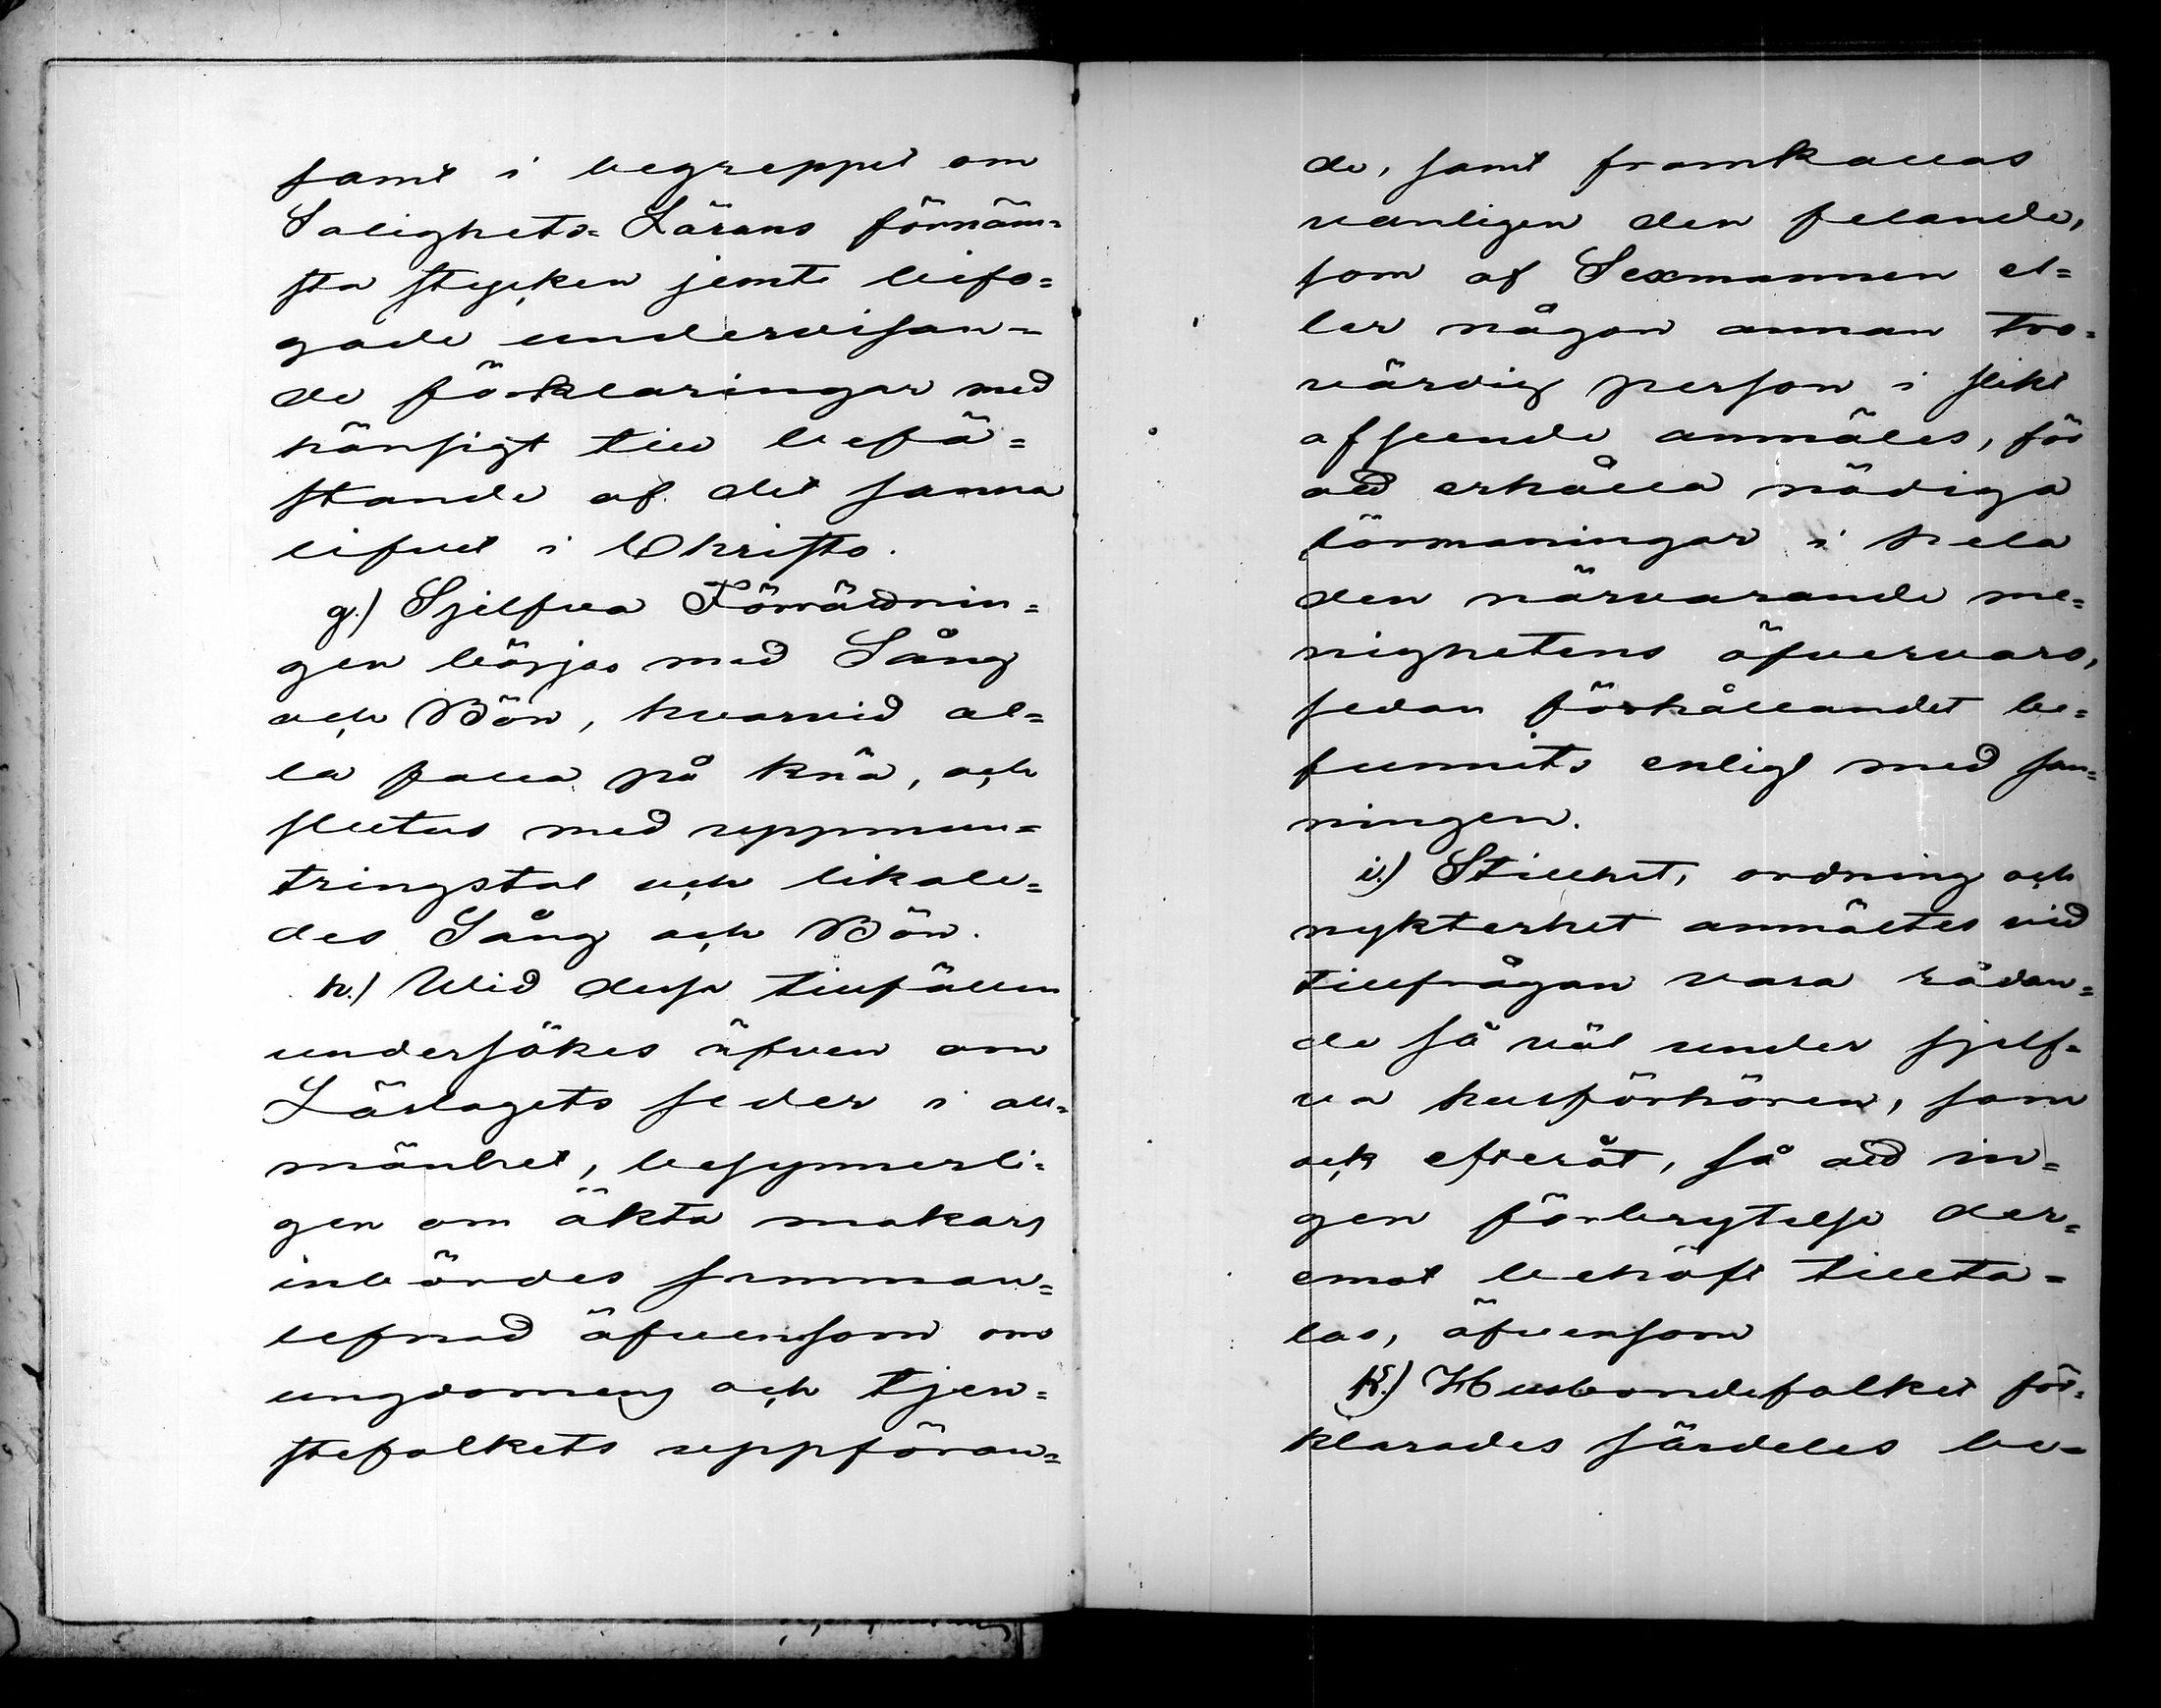 samt i begreppet om
Salighets= Lärans förnäm=
sta stycken jemte bifo=
gade undervisan=
de förklaringar med
hänsigt till befä=
stande af det sanna
lifvet i Christo.
g.) Sjelfva Förrättnin=
gen börjas med Sång
och Bön, hvarvid al=
la falla på knä, och
slutas med uppmun=
tringstal och likale=
des Sång och Bön.
h.) Wid dessa tillfällen
undersökes äfven om
Lärlagets seder i all=
mänhet, besynnerli=
gen om äkta makars
inbördes samman=
lefnad äfvensom om
ungdomens och tjen=
stefolkets uppföran=
de, samt framkallas
vanligen den felande,
som af Sexmannen el=
ler någon annan tro=
värdig person i slikt
afseende anmäles, för
att erhålla nödiga
förmaningar i hela
den närvarande me=
nighetens öfvervaro,
sedan förhållandet be=
funnits enligt med san=
ningen.
i.) Stillhet, ordning och
nykterhet anmältes vid
tillfrågan vara rådan=
de så väl under sjelf=
va husförhören, som
ock efteråt, så att in=
gen förbrytelse der=
emot behöft tillta=
las, äfvensom
k.) Husbondefolket för=
klarades särdeles be=